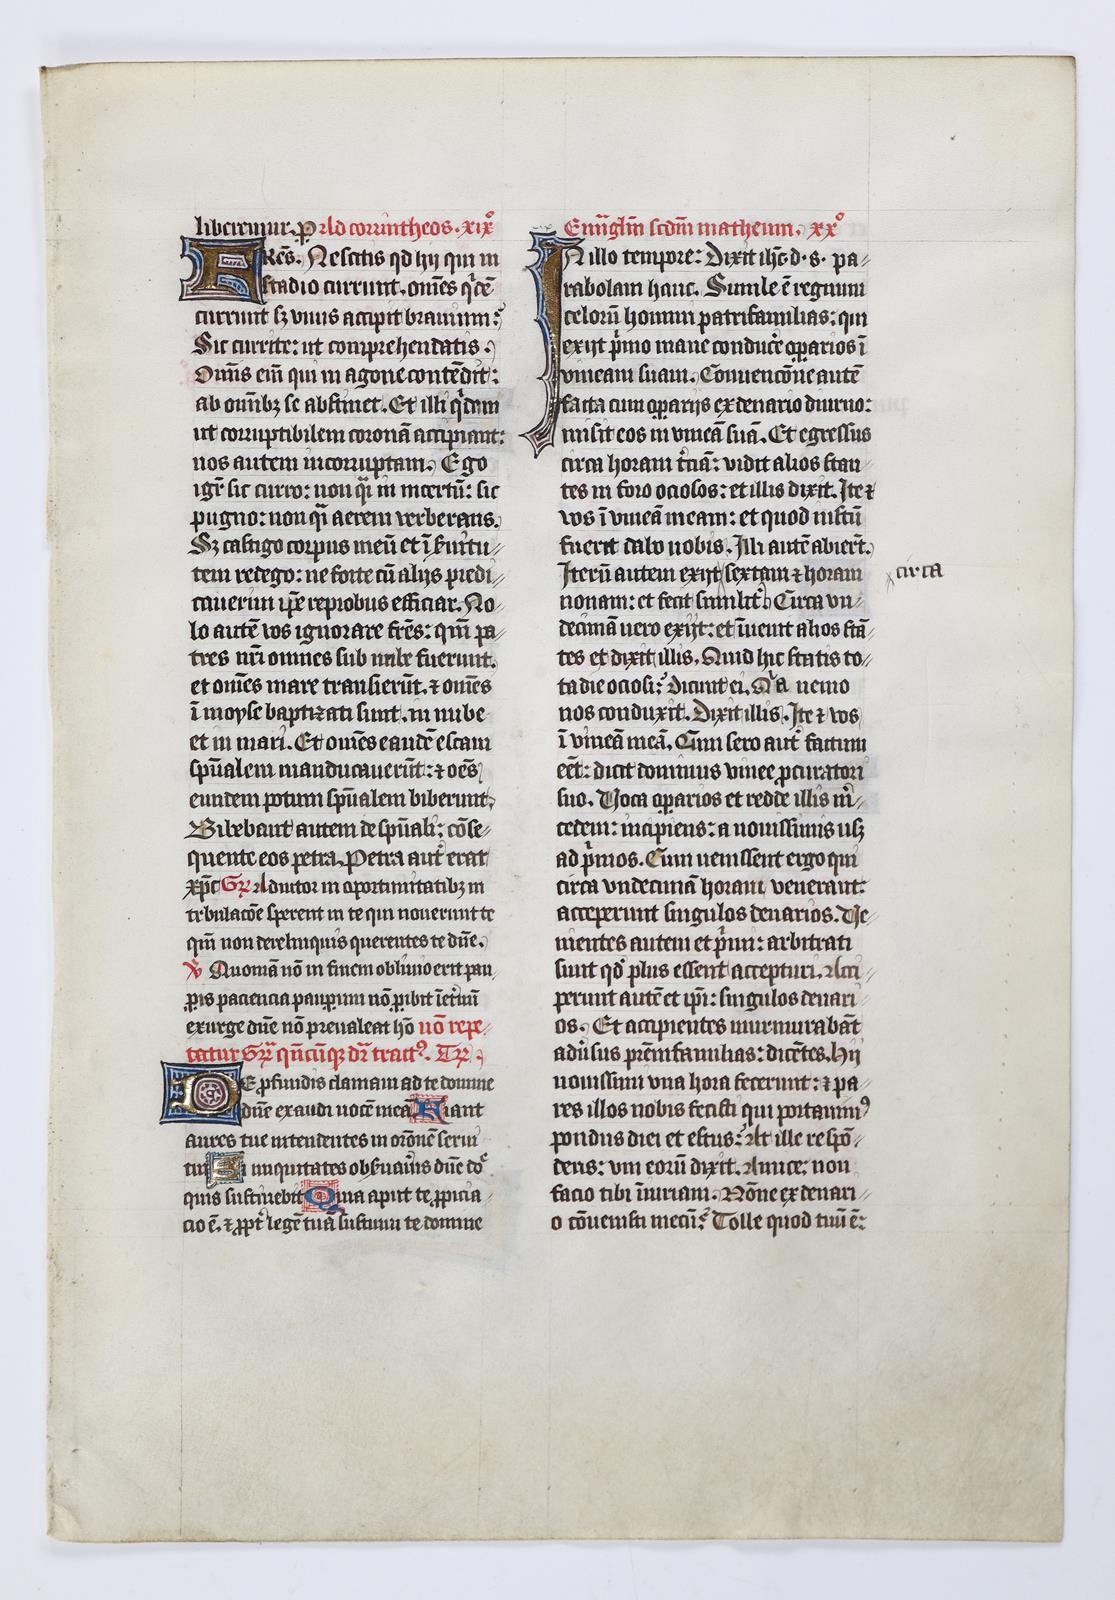 liberemur. P Ad corintheos. xixº
FRēs. Nescitis qd hij qui in
stadio currunt. om̄es qͥdē
currunt sꝫ vnus accipit brauium:
Sic currite: ut comprehendatis.
Om̄is em̄ qui in agone contēdit:
ab om̄ibꝫ se abstinet. Et illi qͥdem
ut corruptibilem coronā accipiant:
nos autem incorruptam. Ego
igͥ sic curro: non qͣi in incertū: sic
pugno: non qͣi aerem verberans.
Sꝫ castigo corpus meū et ī ẜuitu//
tem redego: ne forte cū alijs predi//
cauerim ip̄e reprobus efficiar. No//
lo autē vos ignorare fr̄es: qm̄ pa//
tres nr̄i omnes sub nube fuerunt.
et om̄es mare transierūt. ⁊ om̄es
ī moyse baptizati sunt. in nube
et in mari. Et om̄es eandē escam
sp̄ualem manducauerūt: ⁊ oēs
eundem potum sp̄ualem biberunt.
Bibebant autem de sp̄uali: cōse//
quente eos petra. Petra aut̄ erat
xp̄c Gꝶ Adiutor in oportunitatibꝫ in
tribulacōe sperent in te qui nouerunt te
qm̄ non derelinquis querentes te dn̄e.
℣ Quoniā nō in finem obliuio erit pau//
ꝑis paciencia pauꝑum nō ꝑibit īet̄nū
exurge dn̄e nō preualeat hō nō repe//
tatur Gꝶ qn̄cūqꝫ dr̄ tractꝰ. Tꝶ.
DE ꝓfundis clamaui ad te domine
dn̄e exaudi uocē meā Fiant
aures tue intendentes in or̄onē serui
tui Si iniquitates obẜuau̾is dn̄e dō̄e
quis sustinebit Quia aput te ꝓpicia//
cio ē. ⁊ ꝓpt̾ legē tuā sustinui te domine
Euu̅gliū scdm̄ matheum. xxº
IN illo tempore: Dixit ih̄c. d. s. pa//
rabolam hanc. Simile ē regnum
celorū homini patrifamilias: qui
exijt pͥmo mane conducē oꝑarios ī
vineam suam. Conuencōne autē
facta cum oꝑarijs ex denario diurno:
misit eos in vineā suā. Et egressus
circa horam t̾ciā: vidit alios stan//
tes in foro ociosos: et illis dixit. Ite ⁊
vos ī vineā meam: et quod iustū
fuerit dabo uobis. Illi autē abierūt.
Iterū autem exijt sextam ⁊ horam
circa
nonam: et fecit similit̾. Circa vn//
decimā uero exijt: et īuenit alios stā//
tes et dixit illis. Quid hic statis to//
ta die ociosi: Dicunt ei. Qͥa nemo
nos conduxit. Dixit illis. Ite ⁊ vos
ī vineā meā. Cum sero aut̄ factum
eēt: dicit dominus vinee ꝓcuratori
suo. Voca oꝑarios et redde illis m̾//
cedem: incipiens: a nouissimis usqꝫ
ad pͥmos. Cum uenissent ergo qui
circa vndecimā horam venerant:
acceperunt singulos denarios. Ve//
nientes autem et pͥmi: arbitrati
sunt qđ plus essent accepturi. Acce//
perunt autē et ip̄i: singulos denari//
os. Et accipientes murmurabāt
adu̾sus prēmfamilias: dicētes. Hij
nouissimi vna hora fecerunt: ⁊ pa//
res illos nobis fecisti qui portauimꝰ
pondus diei et estus: At ille respō//
dens: vni eorū dixit. Amice: non
facio tibi īiuriam. Nōne ex denari//
o cōuenisti mecū: Tolle quod tuū ē: